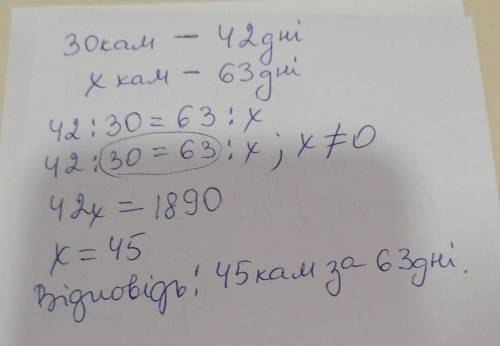 30кам – 42дні
х кам – 63дні
42 : 30 = 63 : х
42 : 30 = 63 : х ; х ≠ 0
42х = 1890
х = 45
Відповідь: 45кам за 63дні.